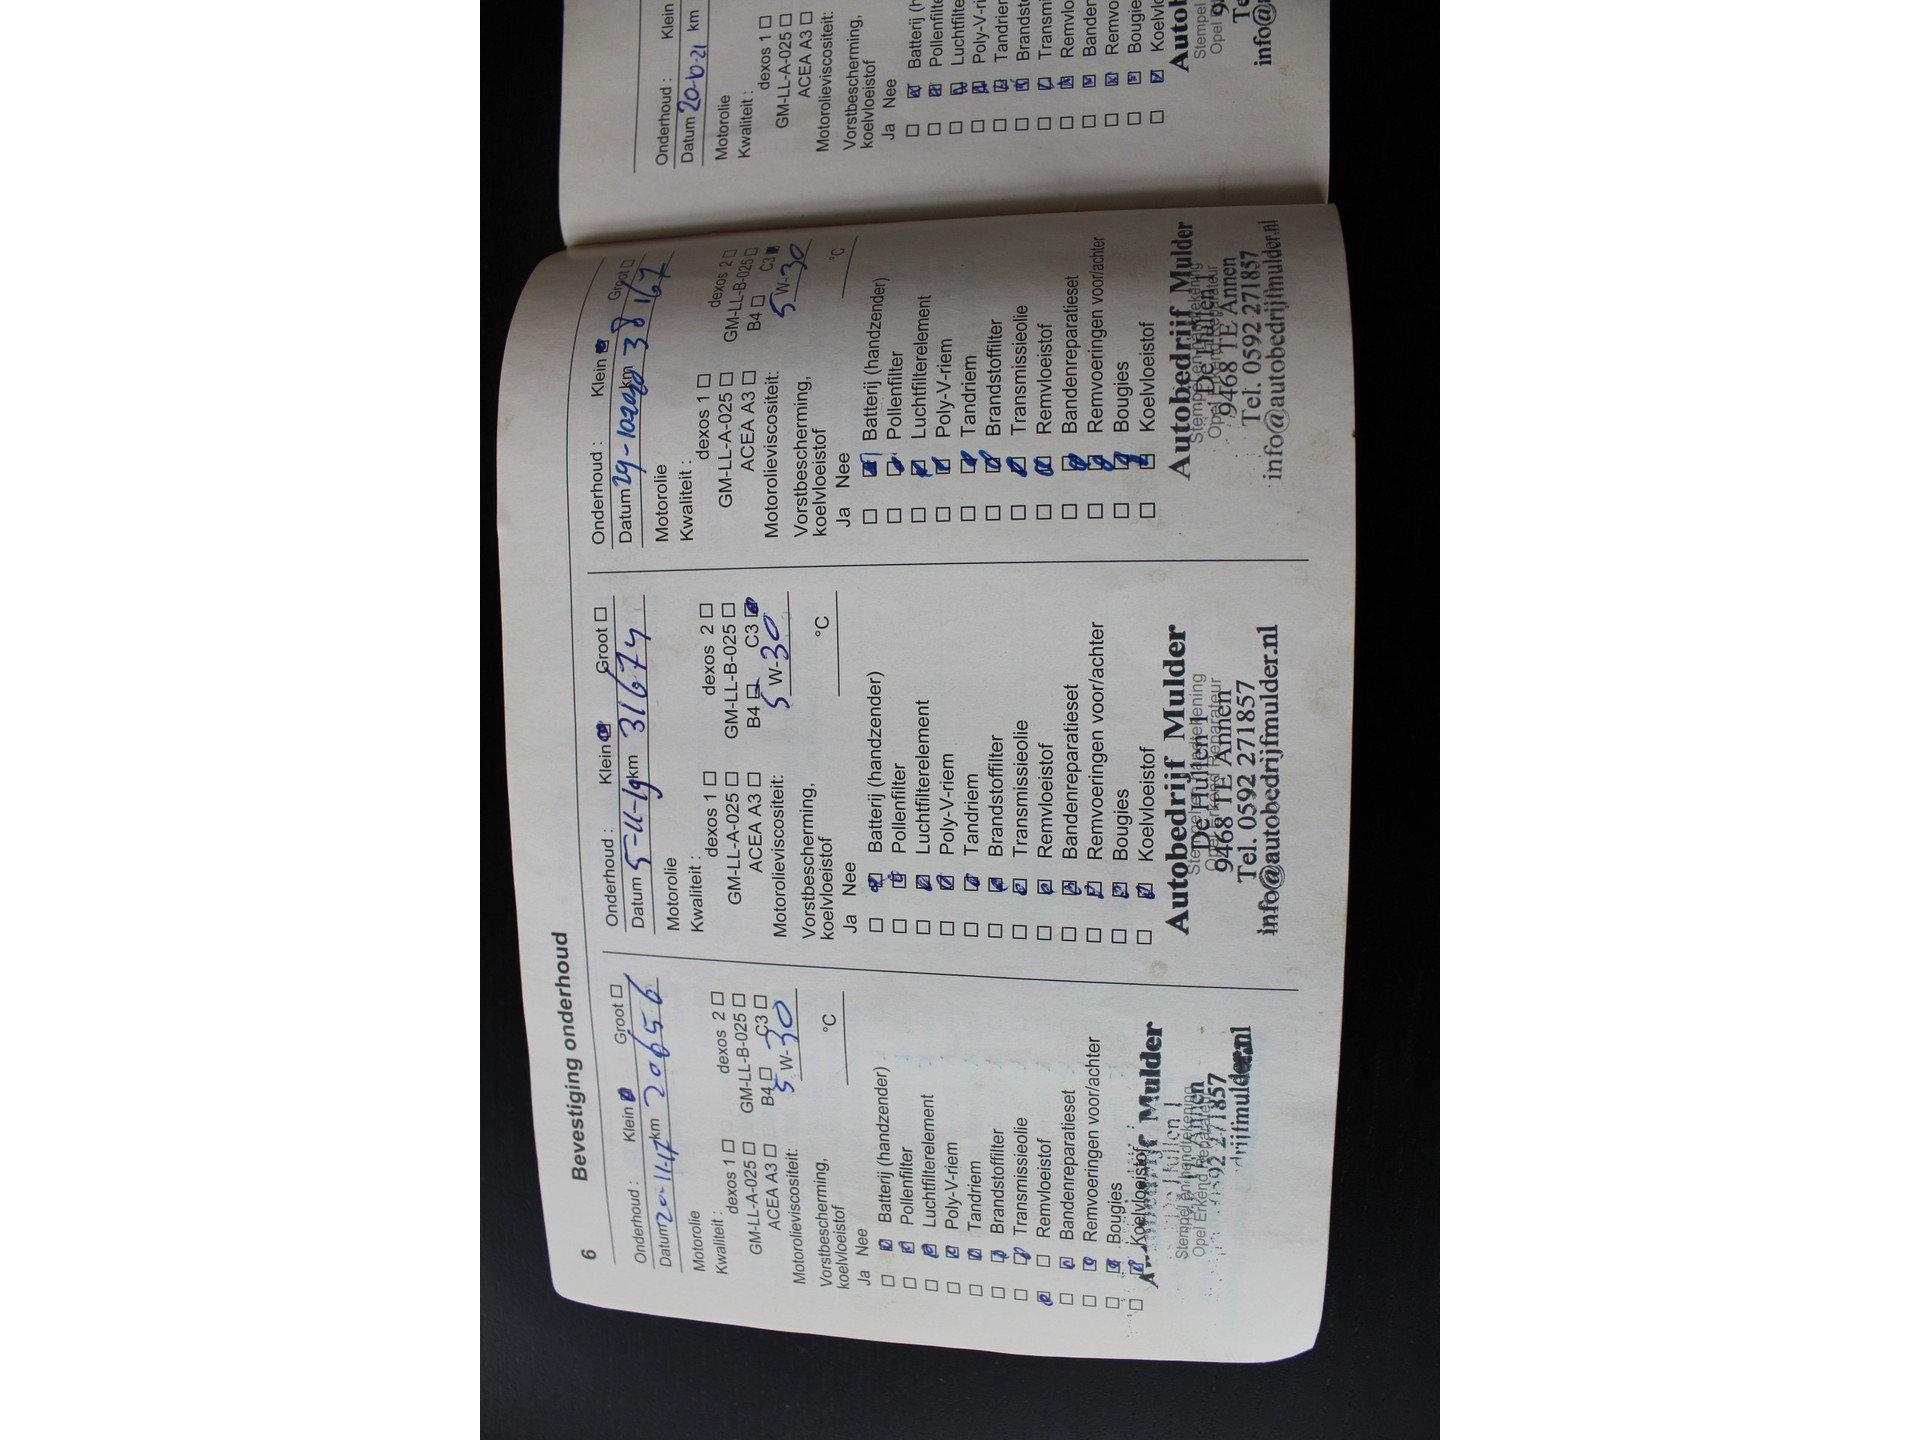 6 Bevestiging onderhoud
Onderhoud : Klein Groot
Datum 20-11-17 km 20656
Motorolie
Kwaliteit :
dexos 1 dexos 2
GM-LL-A-025 GM-LL-B-025
ACEA A3 B4 C3
Motorolieviscositeit: 5 W-30
Vorstbescherming,
koelvloeistof °C
Ja Nee
Batterij (handzender)
Pollenfilter
Luchtfilterelement
Poly-V-riem
Tandriem
Brandstoffilter
Transmissieolie
Remvloeistof
Bandenreparatieset
Remvoeringen voor/achter
Bougies
Koelvloeistof
Mulder
Stempel en handtekening
Opel Erkend Reparateur
0592 271857
drijfmulder.nl
Onderhoud : Klein Groot
Datum 5-11-19 km 31674
Motorolie
Kwaliteit :
dexos 1 dexos 2
GM-LL-A-025 GM-LL-B-025
ACEA A3 B4 C3
Motorolieviscositeit: 5 W-30
Vorstbescherming,
koelvloeistof °C
Ja Nee
Batterij (handzender)
Pollenfilter
Luchtfilterelement
Poly-V-riem
Tandriem
Brandstoffilter
Transmissieolie
Remvloeistof
Bandenreparatieset
Remvoeringen voor/achter
Bougies
Koelvloeistof
Autobedrijf Mulder
Stempel en handtekening
De Hullen 1
Opel Erkend Reparateur
9468 TE Annen
Tel. 0592 271857
info@autobedrijfmulder.nl
Onderhoud : Klein Groot
Datum 29-10-2020 km 38167
Motorolie
Kwaliteit :
dexos 1 dexos 2
GM-LL-A-025 GM-LL-B-025
ACEA A3 B4 C3
Motorolieviscositeit: 5 W-30
Vorstbescherming,
koelvloeistof °C
Ja Nee
Batterij (handzender)
Pollenfilter
Luchtfilterelement
Poly-V-riem
Tandriem
Brandstoffilter
Transmissieolie
Remvloeistof
Bandenreparatieset
Remvoeringen voor/achter
Bougies
Koelvloeistof
Autobedrijf Mulder
Stempel en handtekening
De Hullen 1
Opel Erkend Reparateur
9468 TE Annen
Tel. 0592 271857
info@autobedrijfmulder.nl
Onderhoud : Klein
Datum 20-10-21 km
Motorolie
Kwaliteit :
dexos 1
GM-LL-A-025
ACEA A3
Motorolieviscositeit:
Vorstbescherming,
koelvloeistof
Ja Nee
Batterij (h
Pollenfilte
Luchtfilte
Poly-V-ri
Tandrien
Brandst
Transmi
Remvlo
Banden
Remvo
Bougie
Koelvlo
Autob
Stempel
Opel
Te
info@